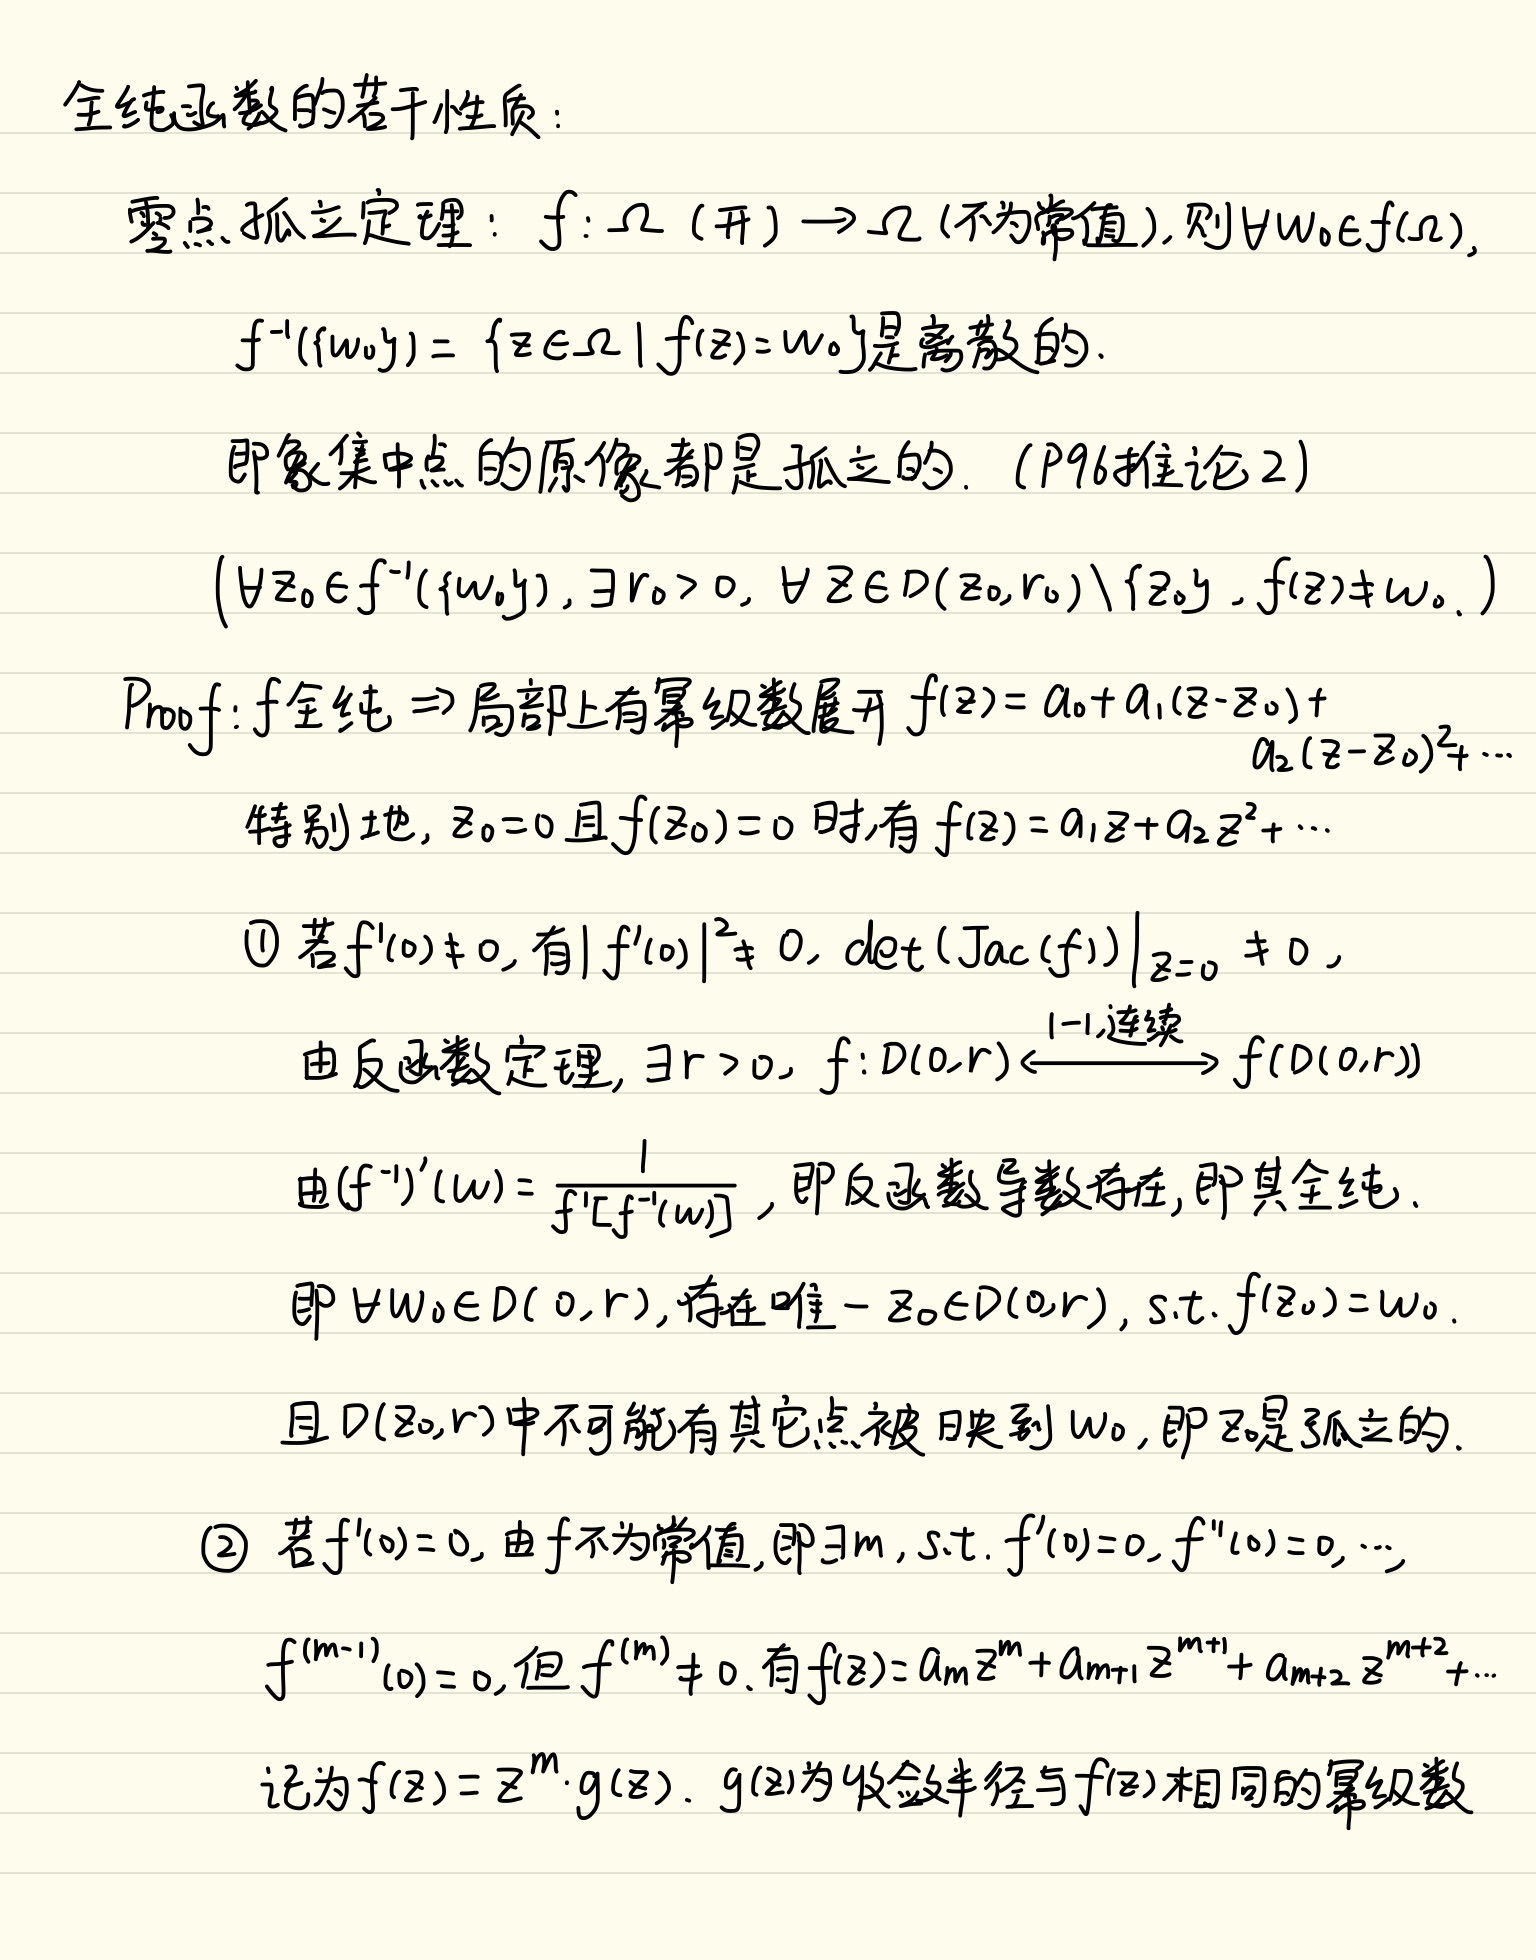 全纯函数的若干性质:
零点孤立定理: f: Ω (开) → Ω (不为常值), 则 ∀w₀∈f(Ω),
f⁻¹({w₀}) = {z∈Ω | f(z)=w₀}是离散的.
即象集中点的原像都是孤立的. (P96推论2)
(∀z₀∈f⁻¹({w₀}), ∃r₀>0, ∀z∈D(z₀,r₀)\{z₀}, f(z)≠w₀.)
Proof: f全纯 ⇒ 局部上有幂级数展开 f(z)=a₀+a₁(z-z₀)+
a₂(z-z₀)²+⋯
特别地, z₀=0且f(z₀)=0 时,有 f(z)=a₁z+a₂z²+⋯
① 若f'(0)≠0, 有|f'(0)|²≠0, det(Jac(f))|_{z=0} ≠0,
由反函数定理, ∃r>0, f: D(0,r) ⟷{1-1,连续} f(D(0,r))
由(f⁻¹)'(w)= 1/f'[f⁻¹(w)], 即反函数导数存在, 即其全纯.
即∀w₀∈D(0,r), 存在唯一z₀∈D(0,r), s.t. f(z₀)=w₀.
且D(z₀,r)中不可能有其它点被映到w₀, 即z₀是孤立的.
② 若f'(0)=0, 由f不为常值, 即∃m, s.t. f'(0)=0, f''(0)=0, ⋯,
f^{(m-1)}(0)=0, 但 f^{(m)}≠0. 有f(z)=a_m z^m+a_{m+1} z^{m+1}+a_{m+2} z^{m+2}+⋯
记为f(z)=z^m·g(z). g(z)为收敛半径与f(z)相同的幂级数